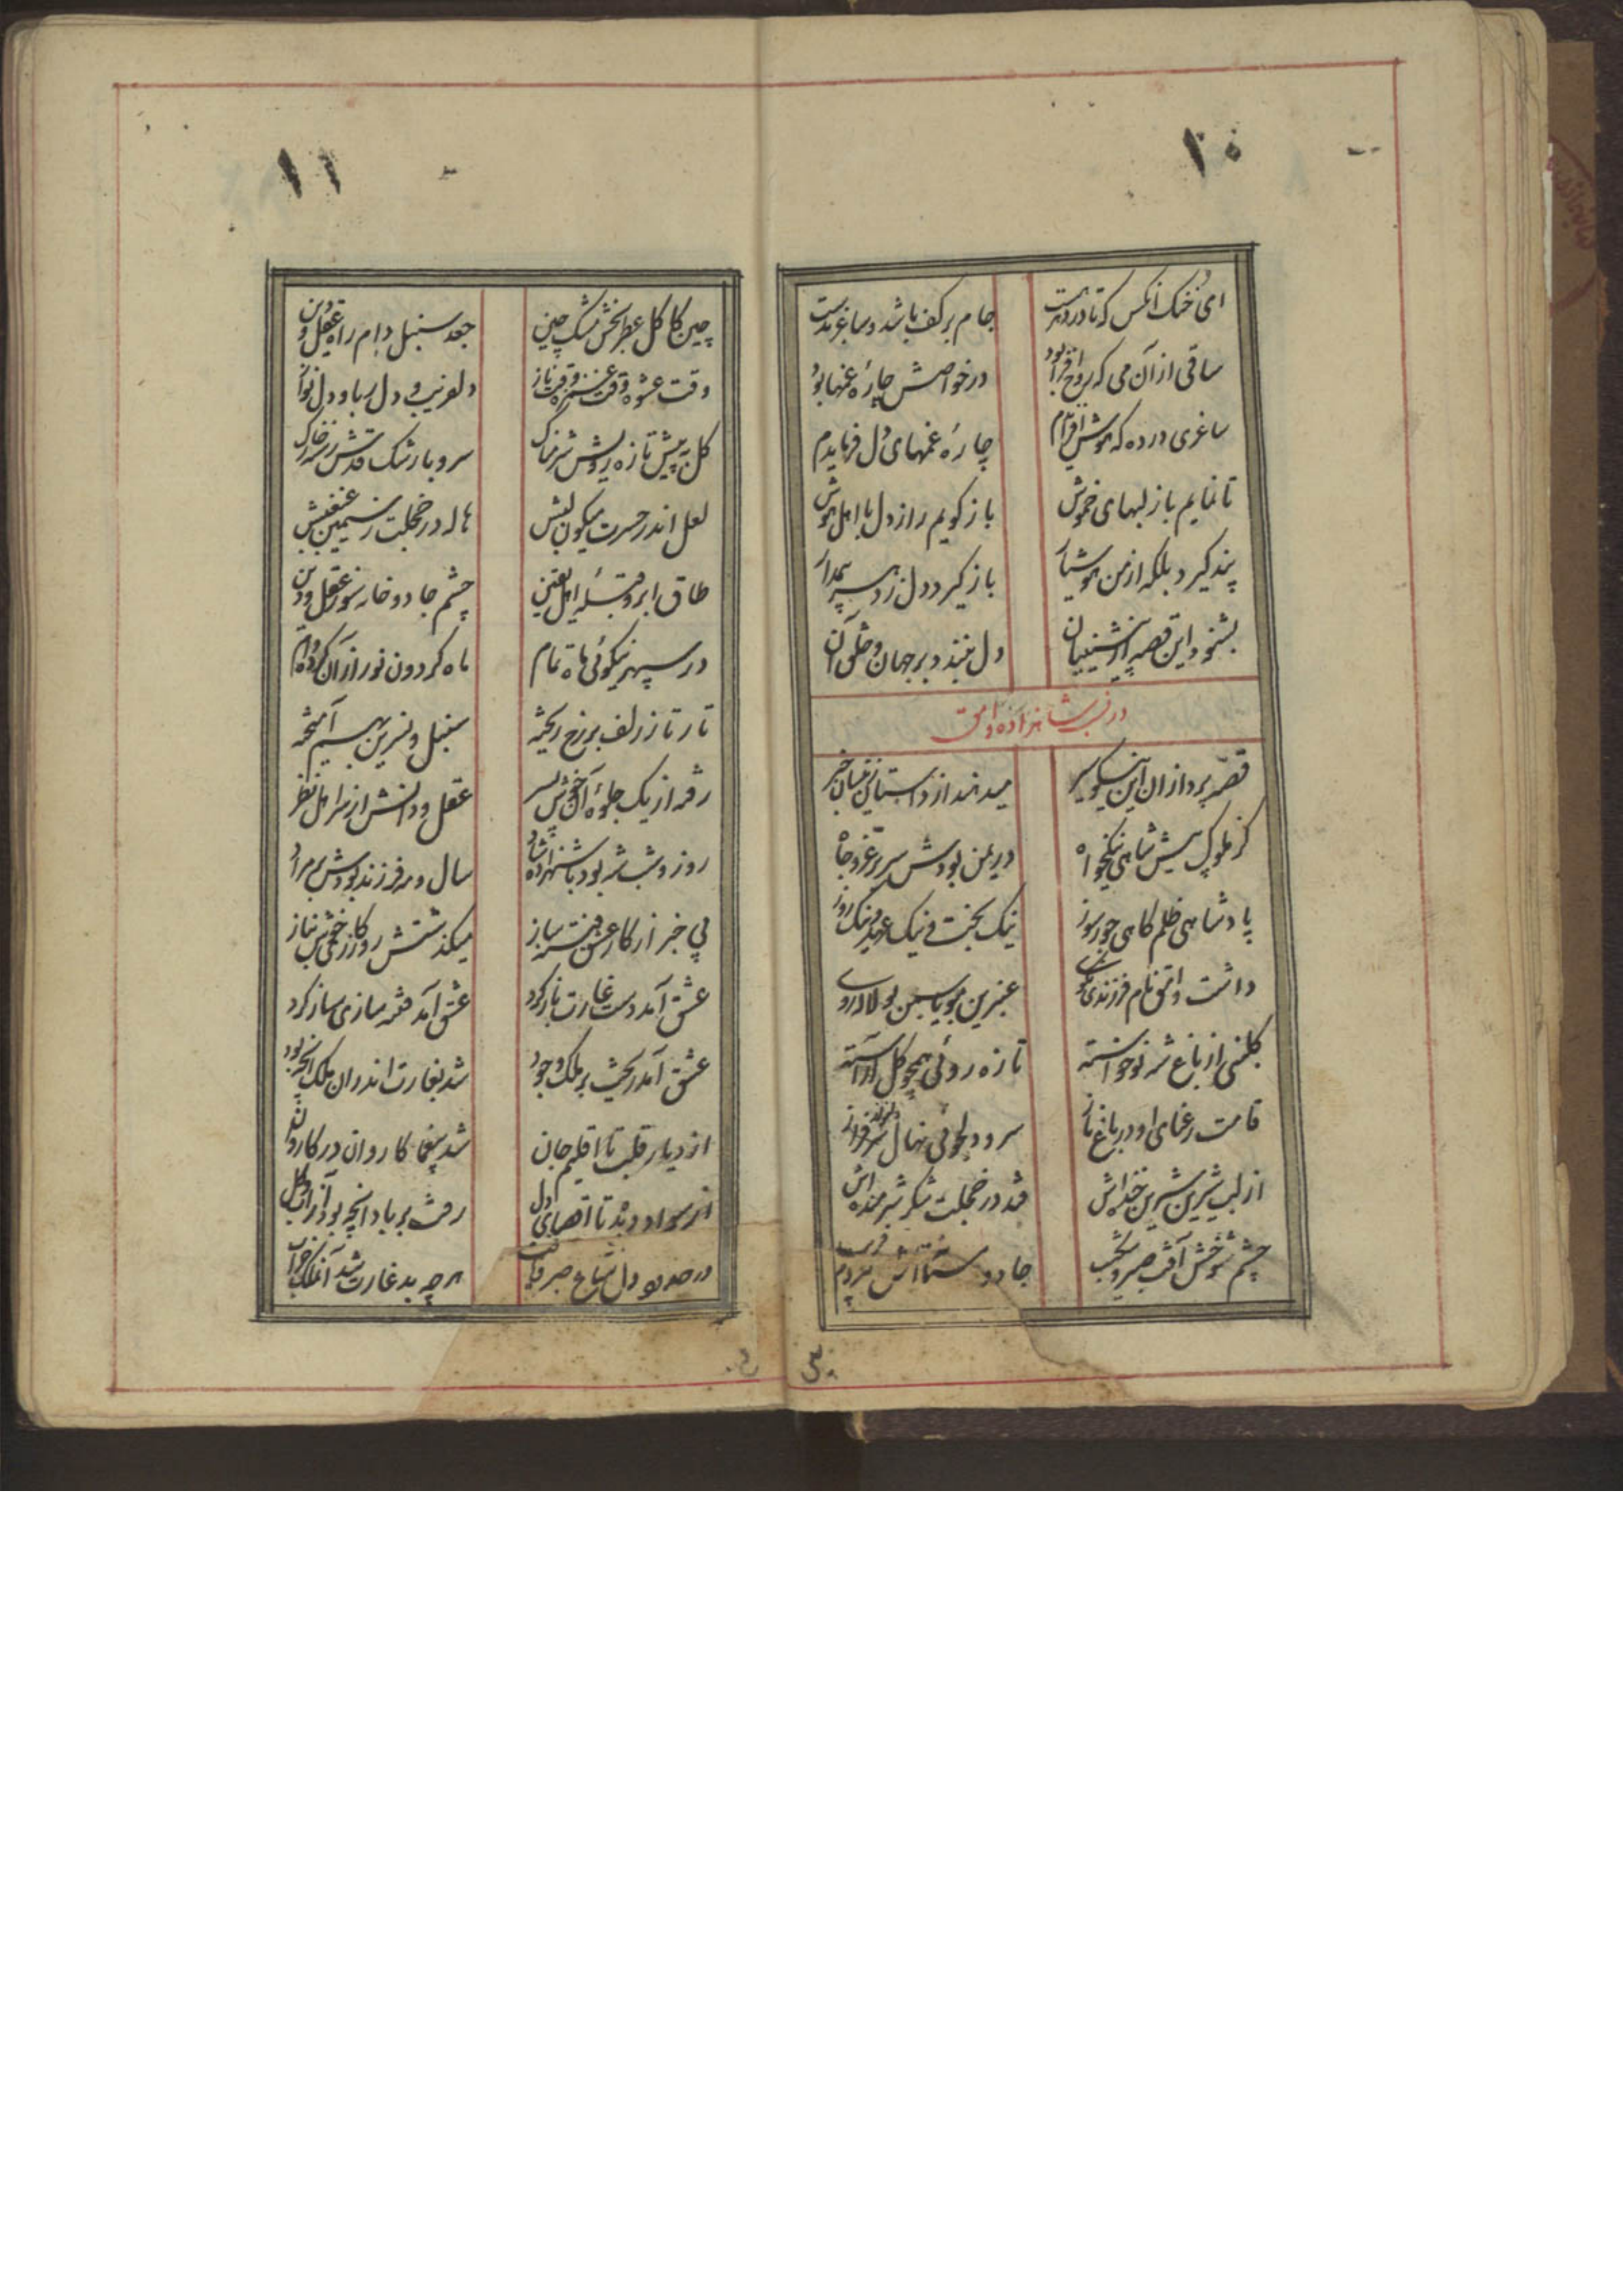 ۱۰
ای خنک آنکس که تا در دهر هست جام بر کف باشد و ساغر بدست
ساقی از آن می که روح افزا بود در خواصش چارهٔ غمها بود
ساغری در ده که هوش افزایدم چارهٔ غمهای دل فرمایدم
تا نمایم باز لبهای خموش باز گویم راز دل با اهل هوش
پند گیرد بلکه از من هوشیار باز گیرد دل ز دهر
بشنود این قصه از پیشینیان دل نبندد بر جهان و خلق آن
در شاهزاده وامق
قصه پردازان این نیکو سیر میدهند از داستان زینسان خبر
کز ملوک پیش شاهی نیکخواه در یمن بودش سریر عز و جاه
پادشاهی ظلم کاهی جور سوز نیک بختی نیک عهدی نیک روز
داشت وامق نام فرزندی عنبرین مو یاسمین بو لاله روی
گلبنی از باغ شه نو خواسته تازه روئی همچو گل آراسته
قامت رعنای او در باغ ناز سرو دلجوئی نهال سرفراز
از لب شیرین شیرین خنده‌اش قند در خجلت شکر شرمنده‌اش
چشم شوخش آفت صبر و شکیب جادو مردم فریب
۱۱
چین کاکل عطر بخش مشک چین جعد سنبل دام راه عقل و دین
وقت عشوه وقت غمزه وقت ناز دلفریب و دل ربا و دل نواز
گل به پیش تازه رویش شرمناک سرو با رشک قدش رفته ز خاک
لعل اندر حسرت میگون لبش هاله در خجلت ز سیمین غبغبش
طاق ابرو قبله اهل یقین چشم جادو خانه سوز عقل و دین
در سپهر نیکوئی ماه تمام ماه گردون نور از آن کرده وام
تار تار زلف بر رخ ریخته سنبل و نسرین بهم آمیخته
رفته از یک جلوهٔ آن خوش پسر عقل و دانش از سر اهل نظر
روز و شب شه بود با شهزاده شاد سال و مه فرزند بودش بر مراد
بی خبر از کار عشق فتنه ساز میگذشتش روزکار خوش بناز
عشق آمد دست غارت باز کرد عشق آمد فتنه سازی ساز کرد
عشق آمد ریخت بر ملک وجود شد بغارت اندران ملک آنچه بود
از دیار قلب تا اقلیم جان شد بیغما کاروان در کاروان
از سواد دیده تا اقصای دل رفت بر باد آنچه بود از آب و گل
در حدود دل متاع صبر و تاب هر چه بد غارت شد آنملک خراب